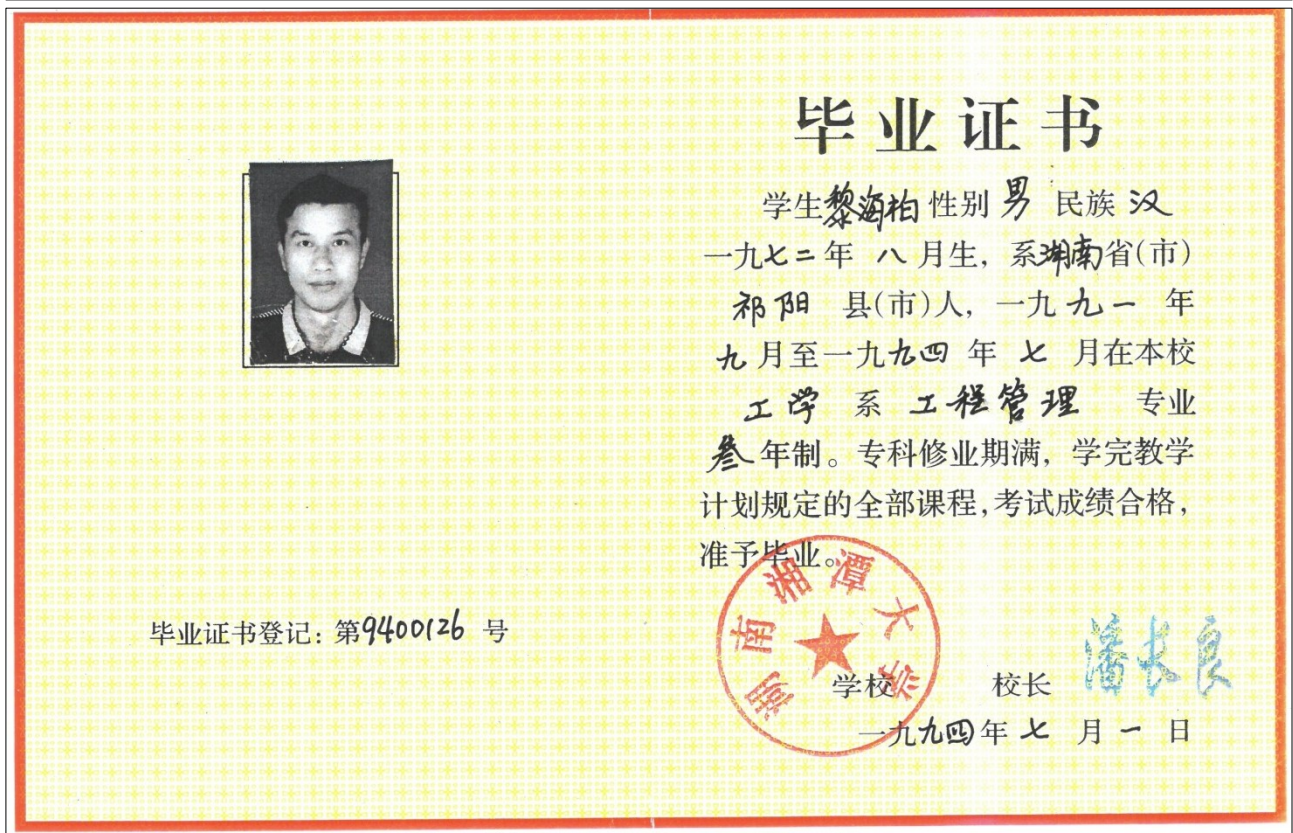 毕业证书
学生黎海柏性别男 民族汉
一九七二年 八月生，系湖南省(市)
祁阳 县(市)人，一九九一 年
九月至一九九四 年 七 月在本校
工学 系 工程管理 专业
叁年制。专科修业期满，学完教学
计划规定的全部课程，考试成绩合格，
准予毕业。
湖南湘潭大学
毕业证书登记：第9400126 号
学校 校长 潘长良
一九九四年 七 月 一 日